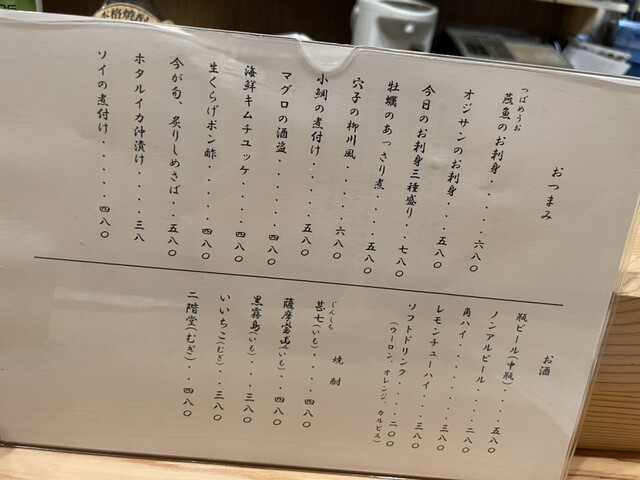 おつまみ
つばめうお
燕魚のお刺身・・・・・六八〇
オジサンのお刺身・・・・五八〇
今日のお刺身三種盛り・・七八〇
牡蠣のあっさり煮・・・・五八〇
穴子の柳川風・・・・・六八〇
小鯛の煮付け・・・・・五八〇
マグロの酒盗・・・・・四八〇
海鮮キムチユッケ・・・・四八〇
生くらげポン酢・・・・・四八〇
今が旬、炙りしめさば・・五八〇
ホタルイカ沖漬け・・・三八
ソイの煮付け・・・・・四八〇
お酒
瓶ビール(中瓶)・・・・五八〇
ノンアルビール・・・・四八〇
角ハイ・・・・・・・・二八〇
レモンチューハイ・・・三八〇
ソフトドリンク・・・・二〇〇
(ウーロン、オレンジ、カルピス)
焼酎
じんしち
甚七(いも)・・・・四八〇
薩摩宝山(いも)・・四八〇
黒霧島(いも)・・・三八〇
いいちこ(むぎ)・・三八〇
二階堂(むぎ)・・・四八〇